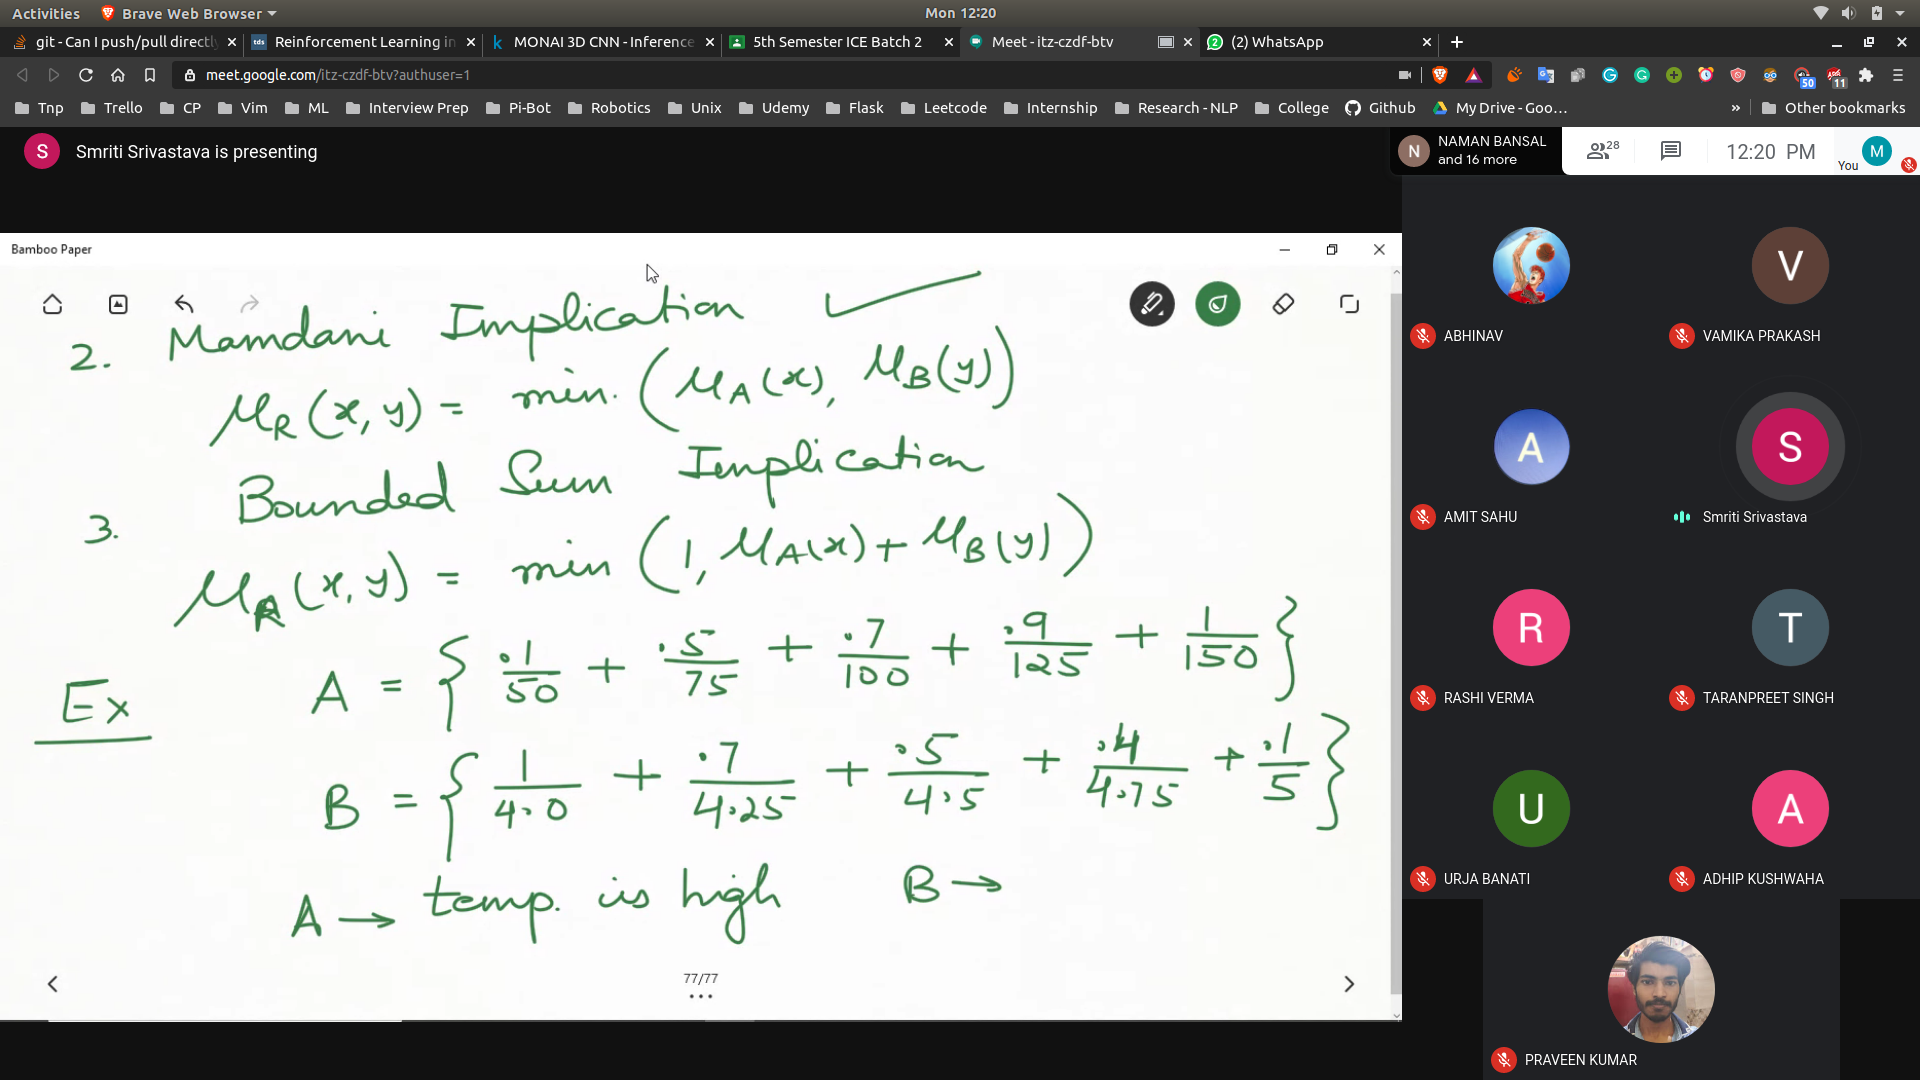 Activities Brave Web Browser Mon 12:20
git - Can I push/pull directly Reinforcement Learning in MONAI 3D CNN - Inference 5th Semester ICE Batch 2 Meet - itz-czdf-btv (2) WhatsApp
meet.google.com/itz-czdf-btv?authuser=1 50 11
Tnp Trello CP Vim ML Interview Prep Pi-Bot Robotics Unix Udemy Flask Leetcode Internship Research - NLP College Github My Drive - Goo… » Other bookmarks
S Smriti Srivastava is presenting
N NAMAN BANSAL and 16 more 28 12:20 PM You M
Bamboo Paper
2. Mamdani Implication
μR(x, y) = min. (μA(x), μB(y))
3. Bounded Sum Implication
μR(x, y) = min (1, μA(x) + μB(y))
Ex A = { .1/50 + .5/75 + .7/100 + .9/125 + 1/150 }
B = { 1/4.0 + .7/4.25 + .5/4.5 + .4/4.75 + .1/5 }
A → temp. is high B →
77/77
ABHINAV
V VAMIKA PRAKASH
A AMIT SAHU
S Smriti Srivastava
R RASHI VERMA
T TARANPREET SINGH
U URJA BANATI
A ADHIP KUSHWAHA
PRAVEEN KUMAR